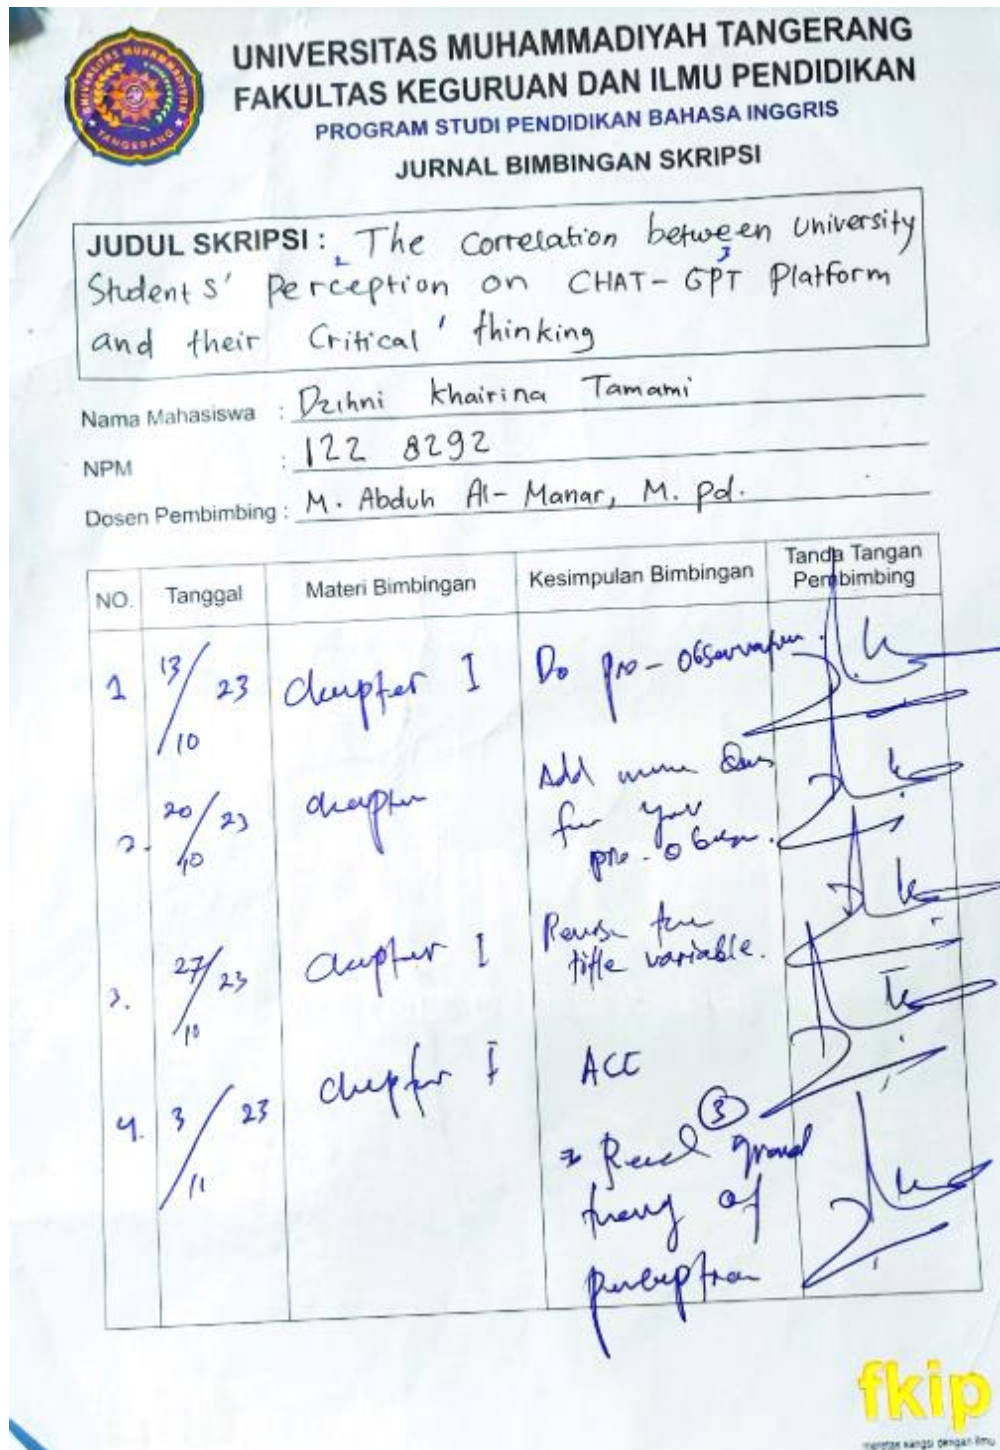 UNIVERSITAS MUHAMMADIYAH TANGERANG
FAKULTAS KEGURUAN DAN ILMU PENDIDIKAN
PROGRAM STUDI PENDIDIKAN BAHASA INGGRIS
JURNAL BIMBINGAN SKRIPSI
UNIVERSITAS MUHAMMADIYAH
TANGERANG
JUDUL SKRIPSI : The Correlation between University
Students' Perception on CHAT-GPT Platform
and their Critical thinking
Nama Mahasiswa : Dzihni Khairina Tamami
NPM : 122 8292
Dosen Pembimbing : M. Abduh Al-Manar, M. Pd.
NO. Tanggal Materi Bimbingan Kesimpulan Bimbingan Tanda Tangan Pembimbing
1 13/10 23 Chapter I Do pre-observation.
2. 20/10 23 chapter Add more
for your
pre-
3. 27/10 23 Chapter I Revise the
title variable.
4. 3/11 23 Chapter I ACC
3
Read grand
theory of
perception
fkip